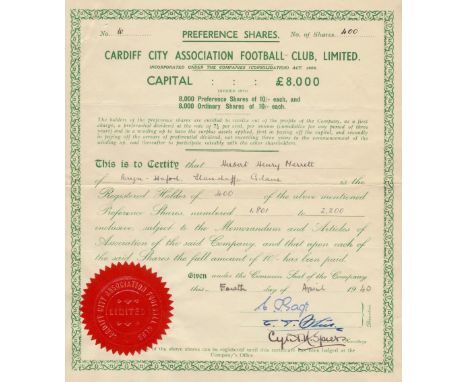 No. 6 PREFERENCE SHARES. No. of Shares. 400
CARDIFF CITY ASSOCIATION FOOTBALL CLUB, LIMITED.
INCORPORATED UNDER THE COMPANIES (CONSOLIDATION) ACT, 1908.
CAPITAL : : : £8,000
DIVIDED INTO
8,000 Preference Shares of 10/- each, and
8,000 Ordinary Shares of 10/- each.
The holders of the preference shares are entitled to receive out of the profits of the Company, as a first
charge, a preferential dividend at the rate of 7½ per cent. per annum (cumulative for any period of three
years) and in a winding up to have the surplus assets applied, first in paying off the capital, and secondly
in paying off the arrears of preferential dividend, not exceeding three years to the commencement of the
winding up, and thereafter to participate rateably with the other shareholders.
This is to Certify that Herbert Henry Merrett
of Llandaff. Gentleman is the
Registered Holder of 400 of the above mentioned
Preference Shares numbered 1,801 to 2,200
inclusive, subject to the Memorandum and Articles of
Association of the said Company, and that upon each of
the said Shares the full amount of 10/- has been paid.
Given under the Common Seal of the Company
this Fourth day of April 1940
Directors
Cyril H Spiers Secretary
CARDIFF CITY ASSOCIATION FOOTBALL CLUB
LIMITED
the above shares can be registered until this certificate has been lodged at the
Company's Office.